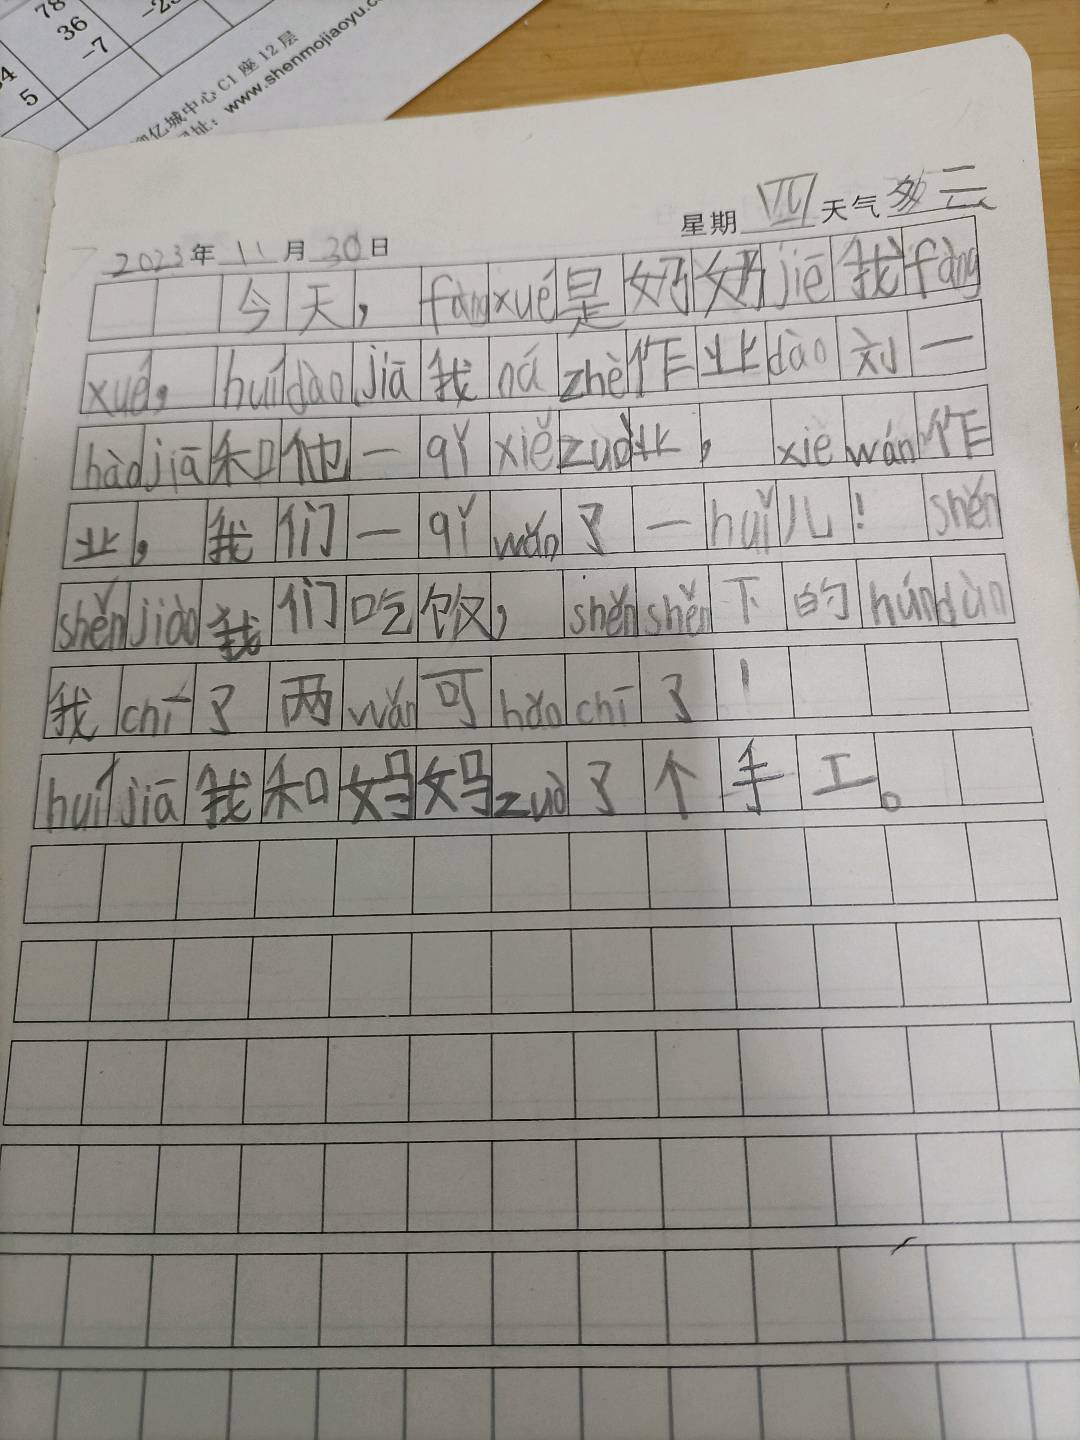 78
36 -23
-7
54
5
亿城中心 C1 座 12 层
址：www.shenmojiaoyu.c
2023年 11月 30日 星期 四 天气 多云
今天，fàngxué是奶奶jiē我fàng
xué，huídàojiā我názhè作业dào刘一
hàojiā和他一qǐxiězuò业，xiěwán作
业，我们一qǐwǎn了一huǐ儿！shěn
shěnjiào我们吃饭，shěnshěn下的húndùn
我chī了两wǎn可hǎochī了！
huíjiā我和妈妈zuò了个手工。